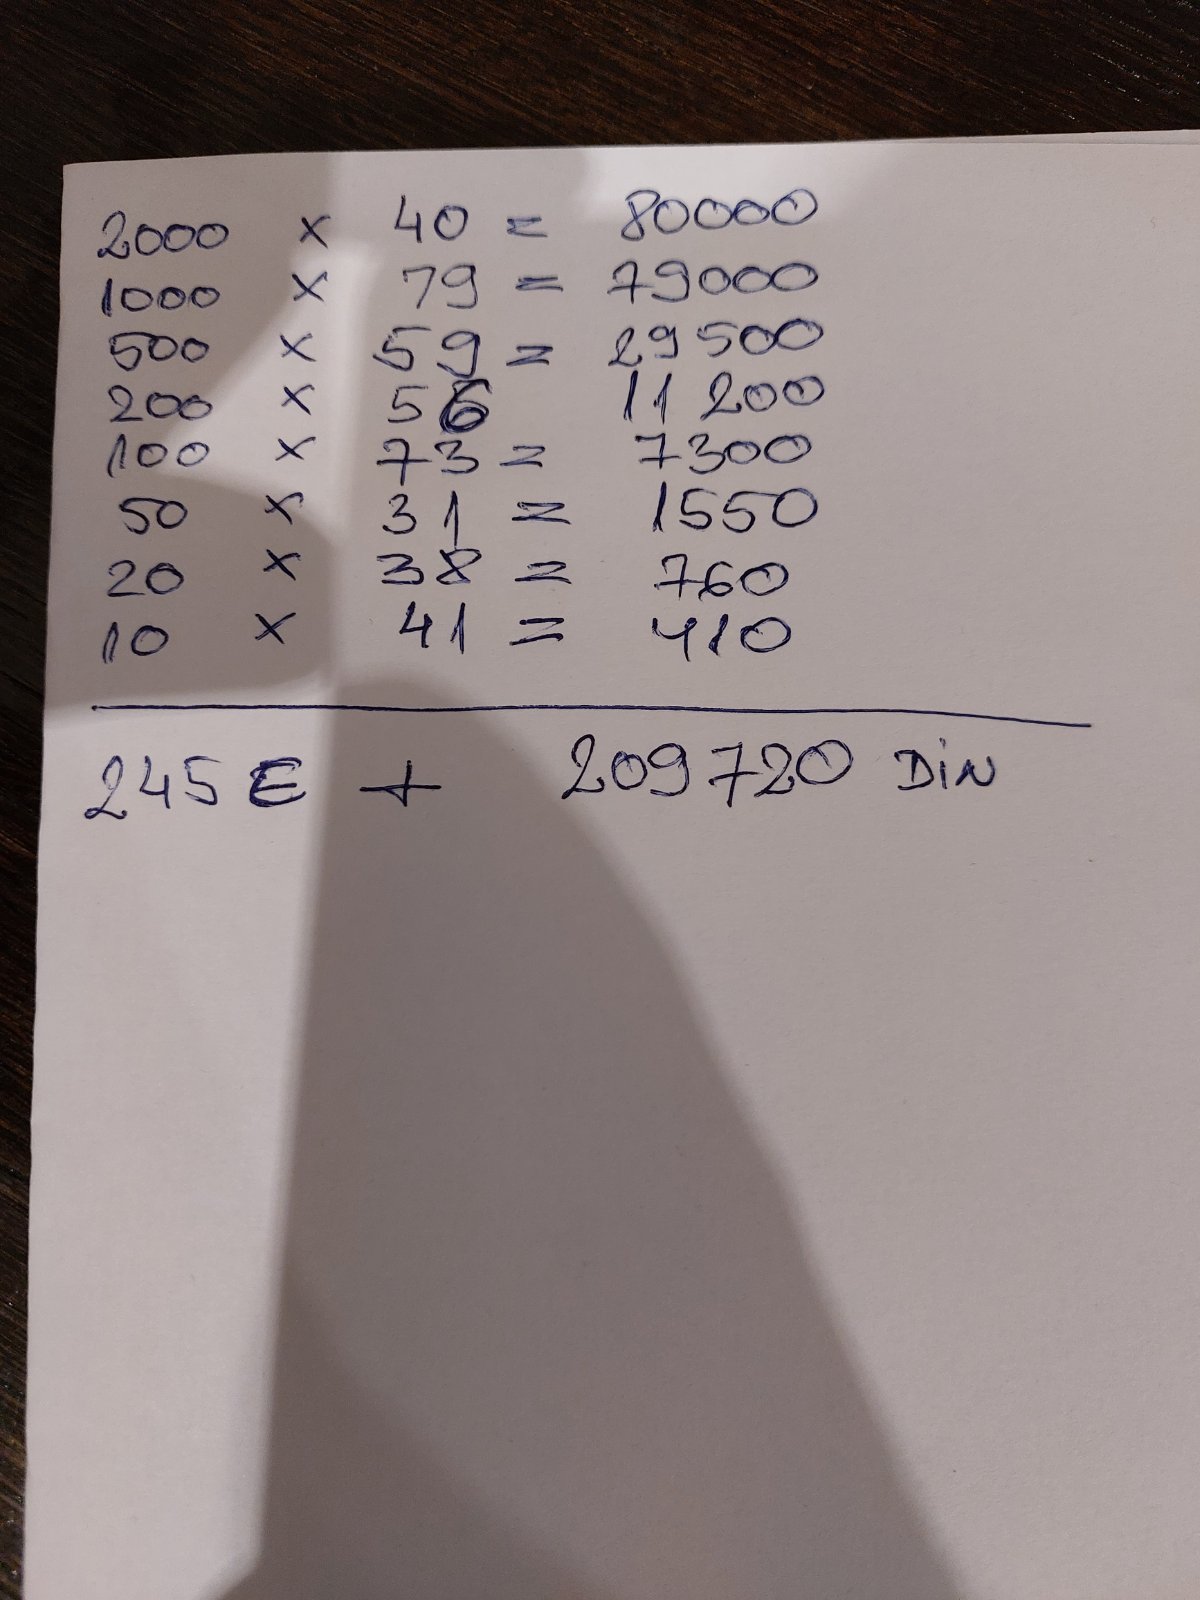 2000 × 40 = 80000
1000 × 79 = 79000
500 × 59 = 29500
200 × 56 11 200
100 × 73 = 7300
50 × 31 = 1550
20 × 38 = 760
10 × 41 = 410
245 € + 209720 DiN